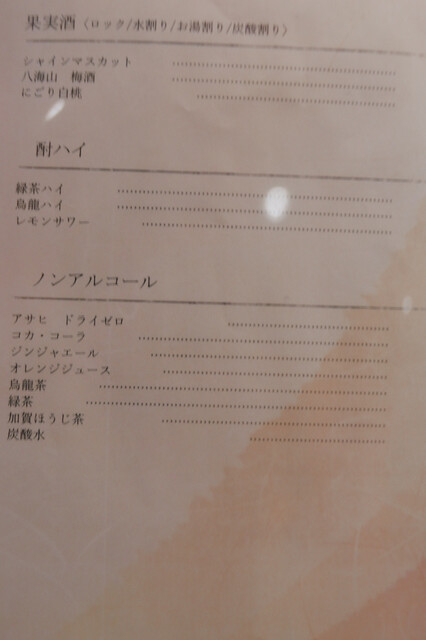 果実酒〈ロック/水割り/お湯割り/炭酸割り〉
シャインマスカット
八海山　梅酒
にごり白桃
酎ハイ
緑茶ハイ
烏龍ハイ
レモンサワー
ノンアルコール
アサヒ　ドライゼロ
コカ・コーラ
ジンジャエール
オレンジジュース
烏龍茶
緑茶
加賀ほうじ茶
炭酸水